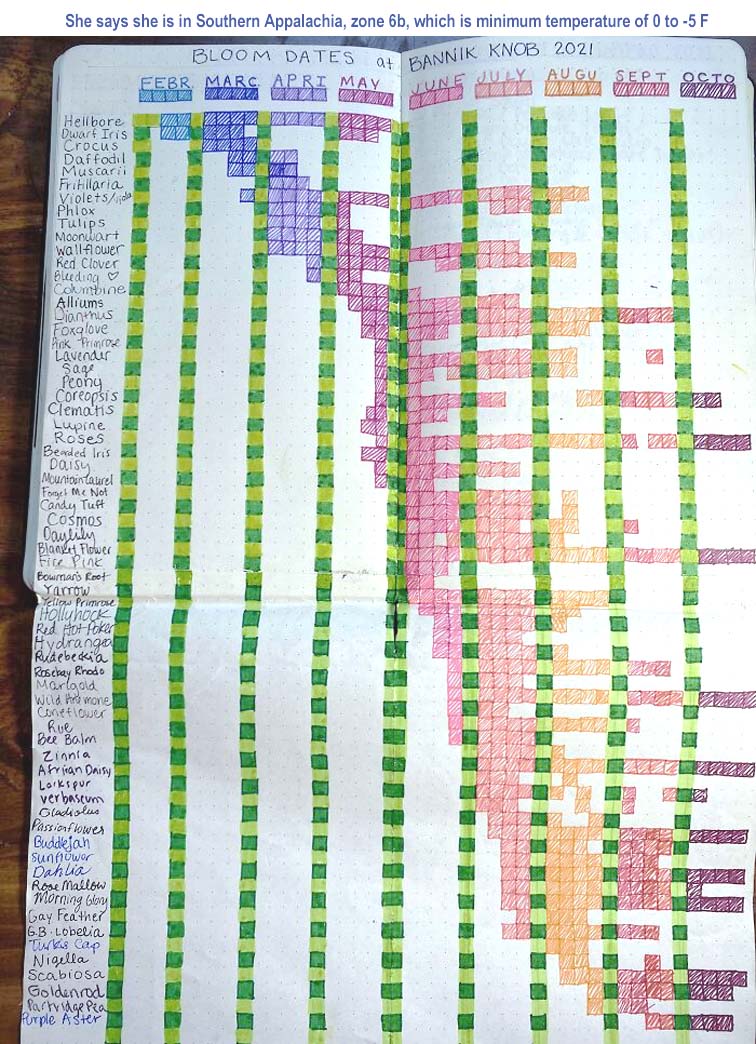 She says she is in Southern Appalachia, zone 6b, which is minimum temperature of 0 to -5 F
BLOOM DATES at BANNIK KNOB 2021
FEBR MARC APRI MAY JUNE JULY AUGU SEPT OCTO
Hellbore
Dwarf Iris
Crocus
Daffodil
Muscarii
Frithlaria
Violets/
Phlox
Tulips
Moonwart
Wallflower
Red Clover
Bleeding ♡
Columbine
Alliums
Dianthus
Foxglove
Pink Primrose
Lavender
Sage
Peony
Coreopsis
Clematis
Lupine
Roses
Bearded Iris
Daisy
Mountain Laurel
Forget Me Not
Candy Tuft
Cosmos
Daylily
Blanket Flower
Fire Pink
Bowman's Root
Yarrow
Yellow Primrose
Hollyhock
Red Hot Poker
Hydrangea
Rudebeckia
Rosebay Rhodo
Marigold
Wild Anemone
Coneflower
Rue
Bee Balm
Zinnia
African Daisy
Larkspur
Verbascum
Gladiolus
Passionflower
Buddlejah
Sunflower
Dahlia
Rose Mallow
Morning Glory
Gay Feather
G.B. Lobelia
Turk's Cap
Nigella
Scabiosa
Goldenrod
Partridge Pea
Purple Aster